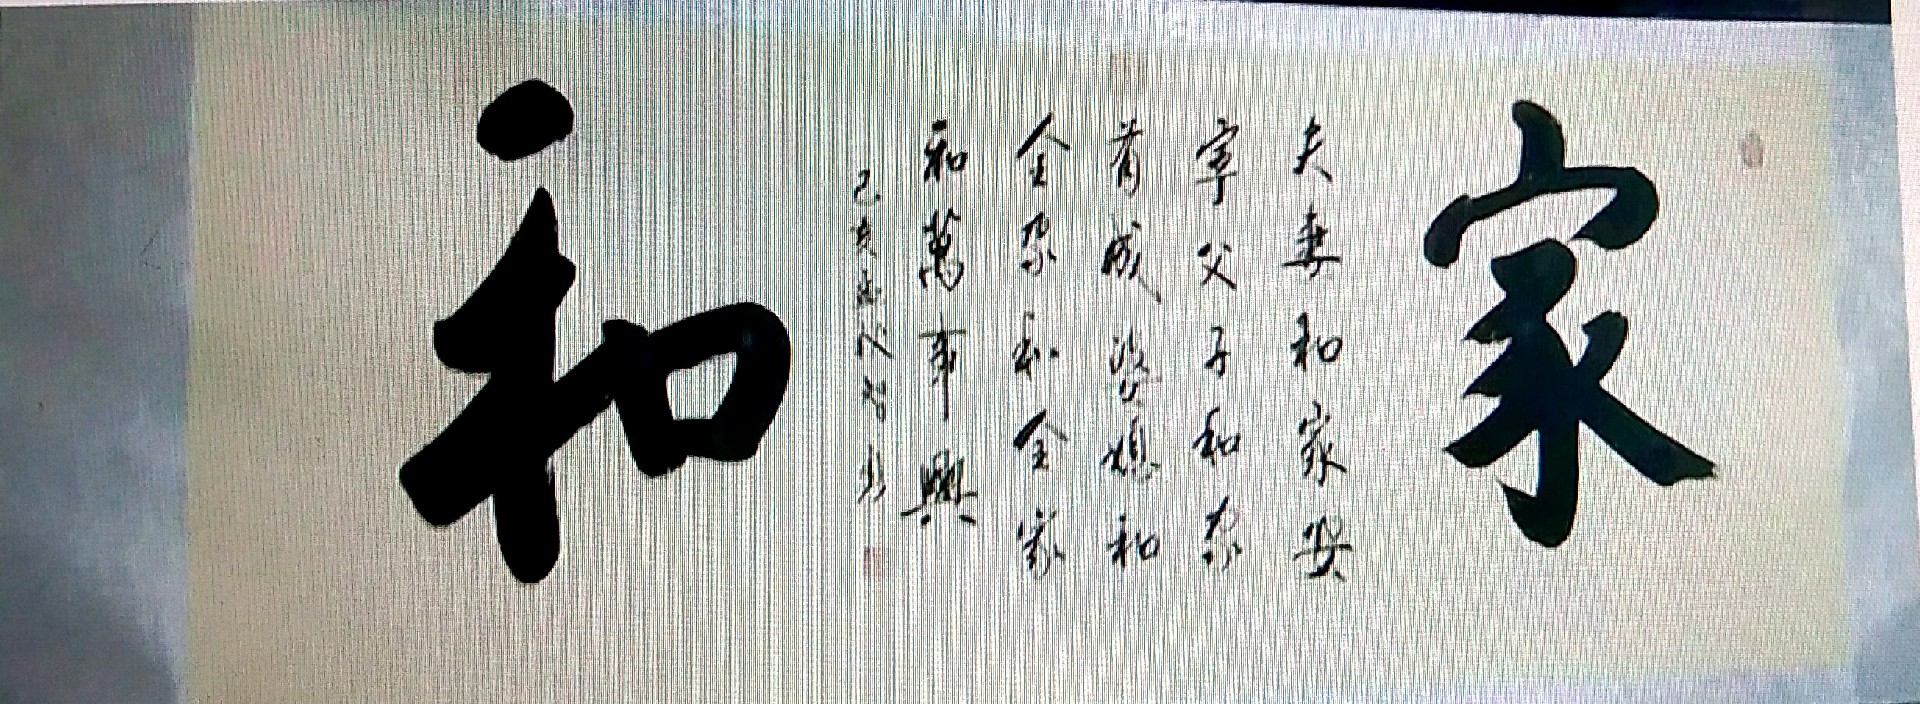 家
夫妻和家安
寧父子和家
有成婆媳和
全家和全家
和萬事興
己亥
和